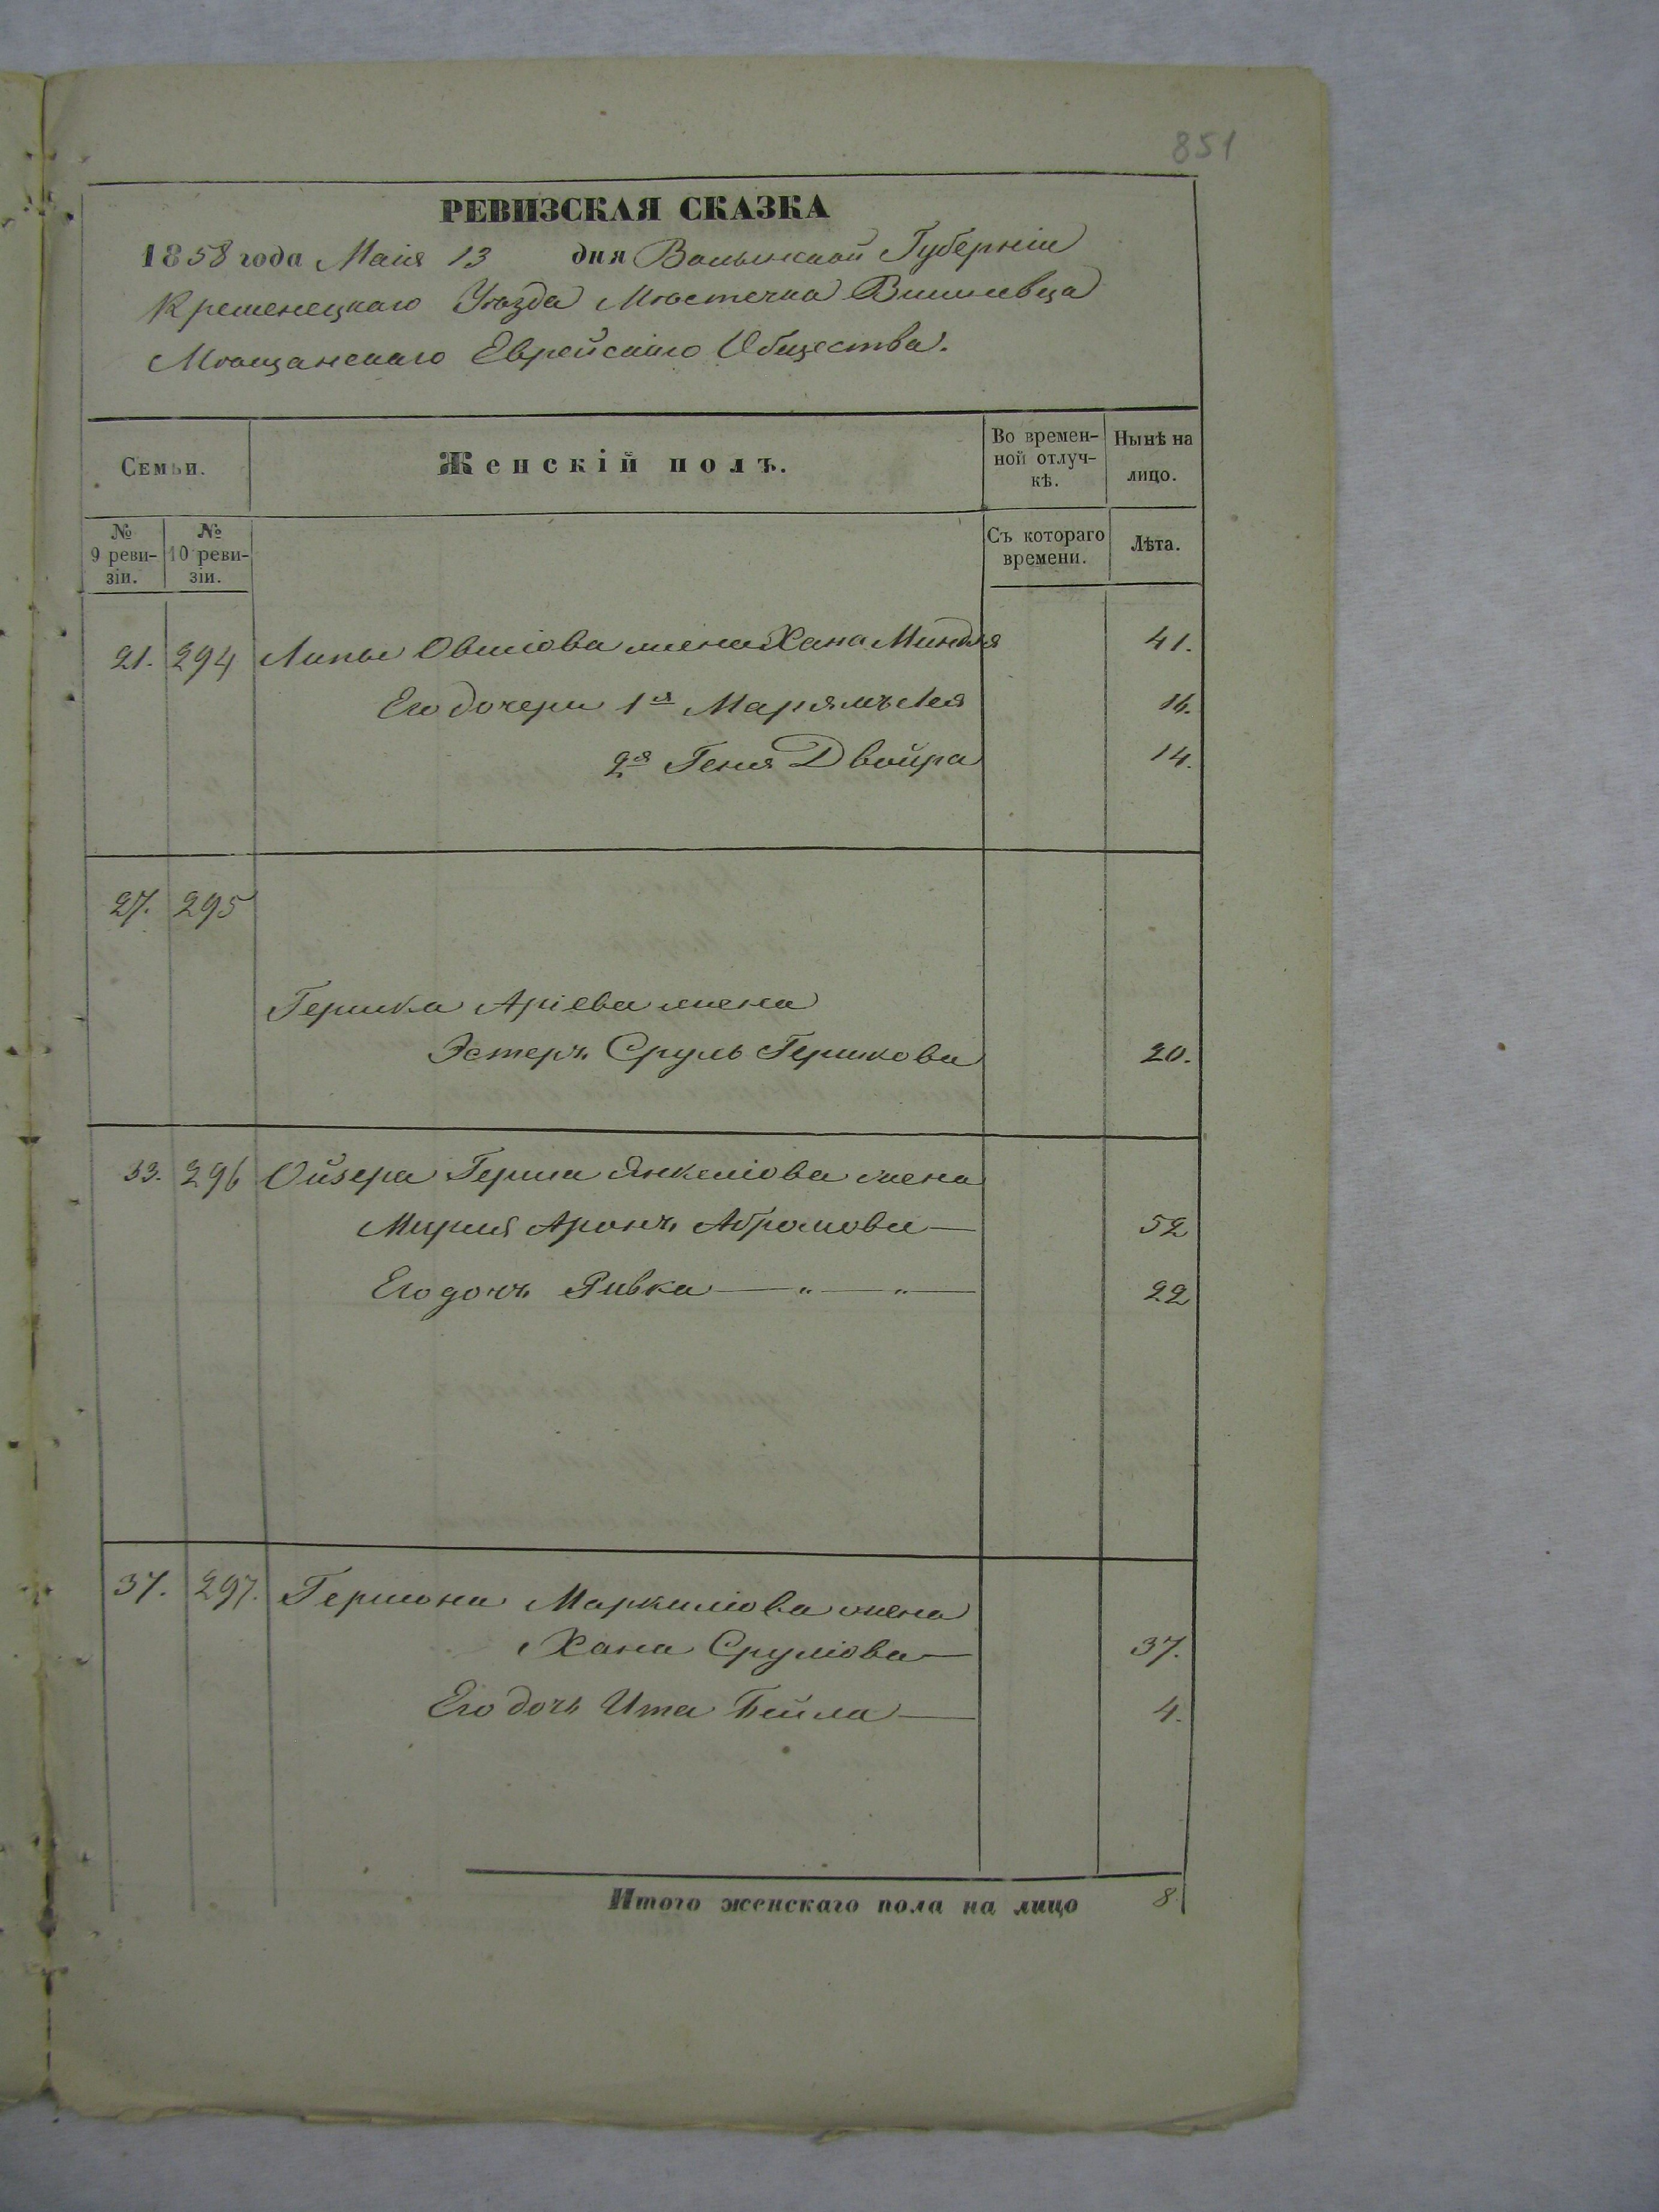 851
РЕВИЗСКАЯ СКАЗКА
1858 года Маія 13 дня Волынской Губерніи
Кременецкаго Уѣзда Мѣстечка Вишневца
Мѣщанскаго Еврейскаго Общества.
Семьи. Женскій полъ. Во временной отлучкѣ. Нынѣ на лицо.
№ 9 ревизіи. № 10 ревизіи. Съ котораго времени. Лѣта.
21. 294 Липы Овшіова жена Хана Миндля 41.
Его дочери 1я Марямъ Лея 16.
2я Геня Двойра 14.
27. 295
Гершка Аріева жена
Эстеръ Сруль Гершкова 20.
33. 296 Ойзера Герша Янкеліова жена
Мирия Аронъ Абрамова — 52
Его дочь Ривка — „ — „ — 22
37. 297. Гершона Маркиліова жена
Хана Сруліова — 37.
Его дочь Ита Бейла — 4.
Итого женскаго пола на лицо 8